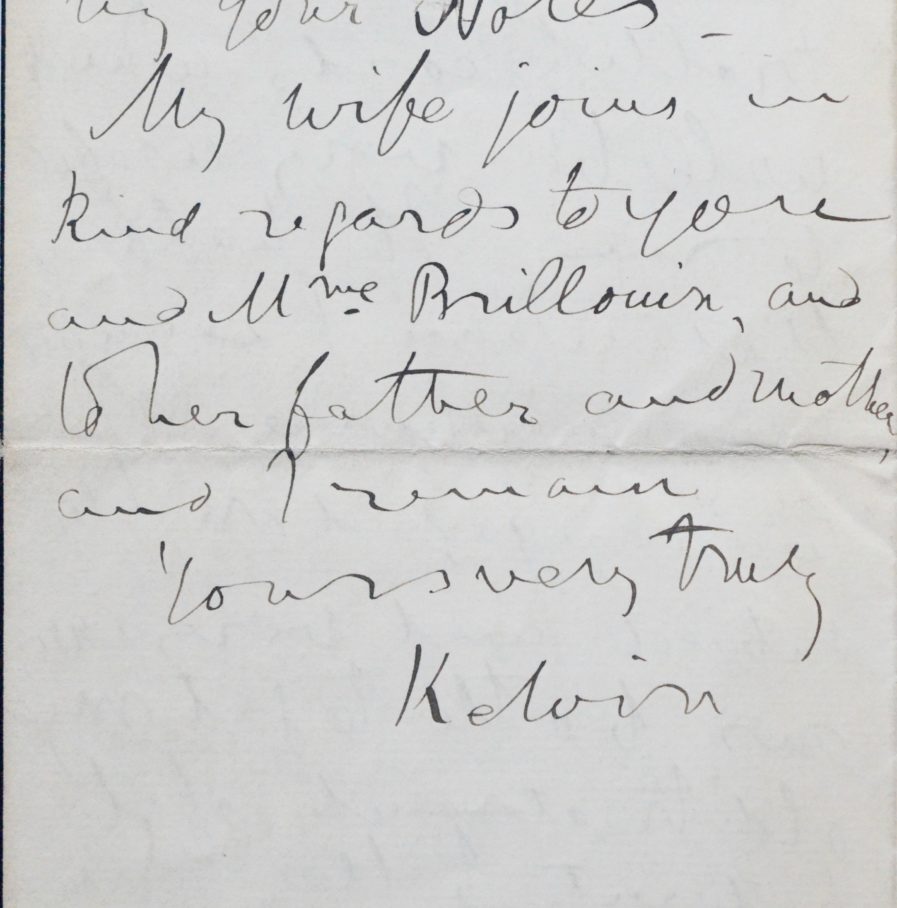 by your Notes –
My wife joins in
kind regards to you
and Mme Brillouin, and
to her father and mother,
and I remain
Yours very truly
Kelvin